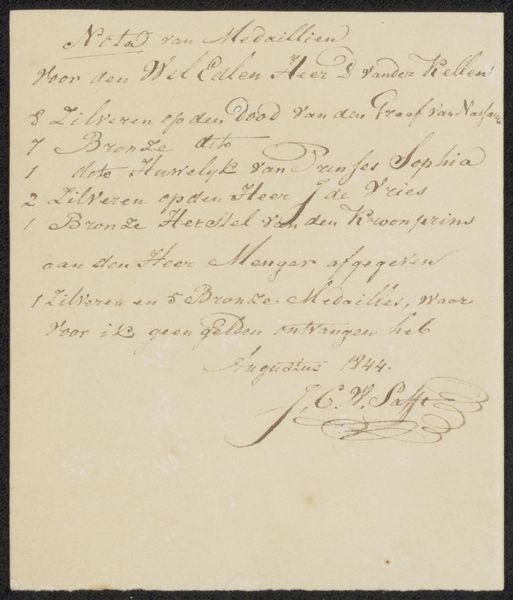 Nota van Medaillien
voor den Wel Edlen Heer D vander Kellen
8 Zilveren op den Dood van den Graaf van Nassau
7 Bronze dito
1 dito Huwelyk van Prinses Sophia
2 Zilveren op den Heer J de Vries
1 Bronze Herstel van den Kroonprins
aan den Heer Menger afgegeven
1 Zilveren en 5 Bronze Medailles, waar
voor ik geen gelden ontvangen heb
Augustus 1844.
J. C. W. Safft